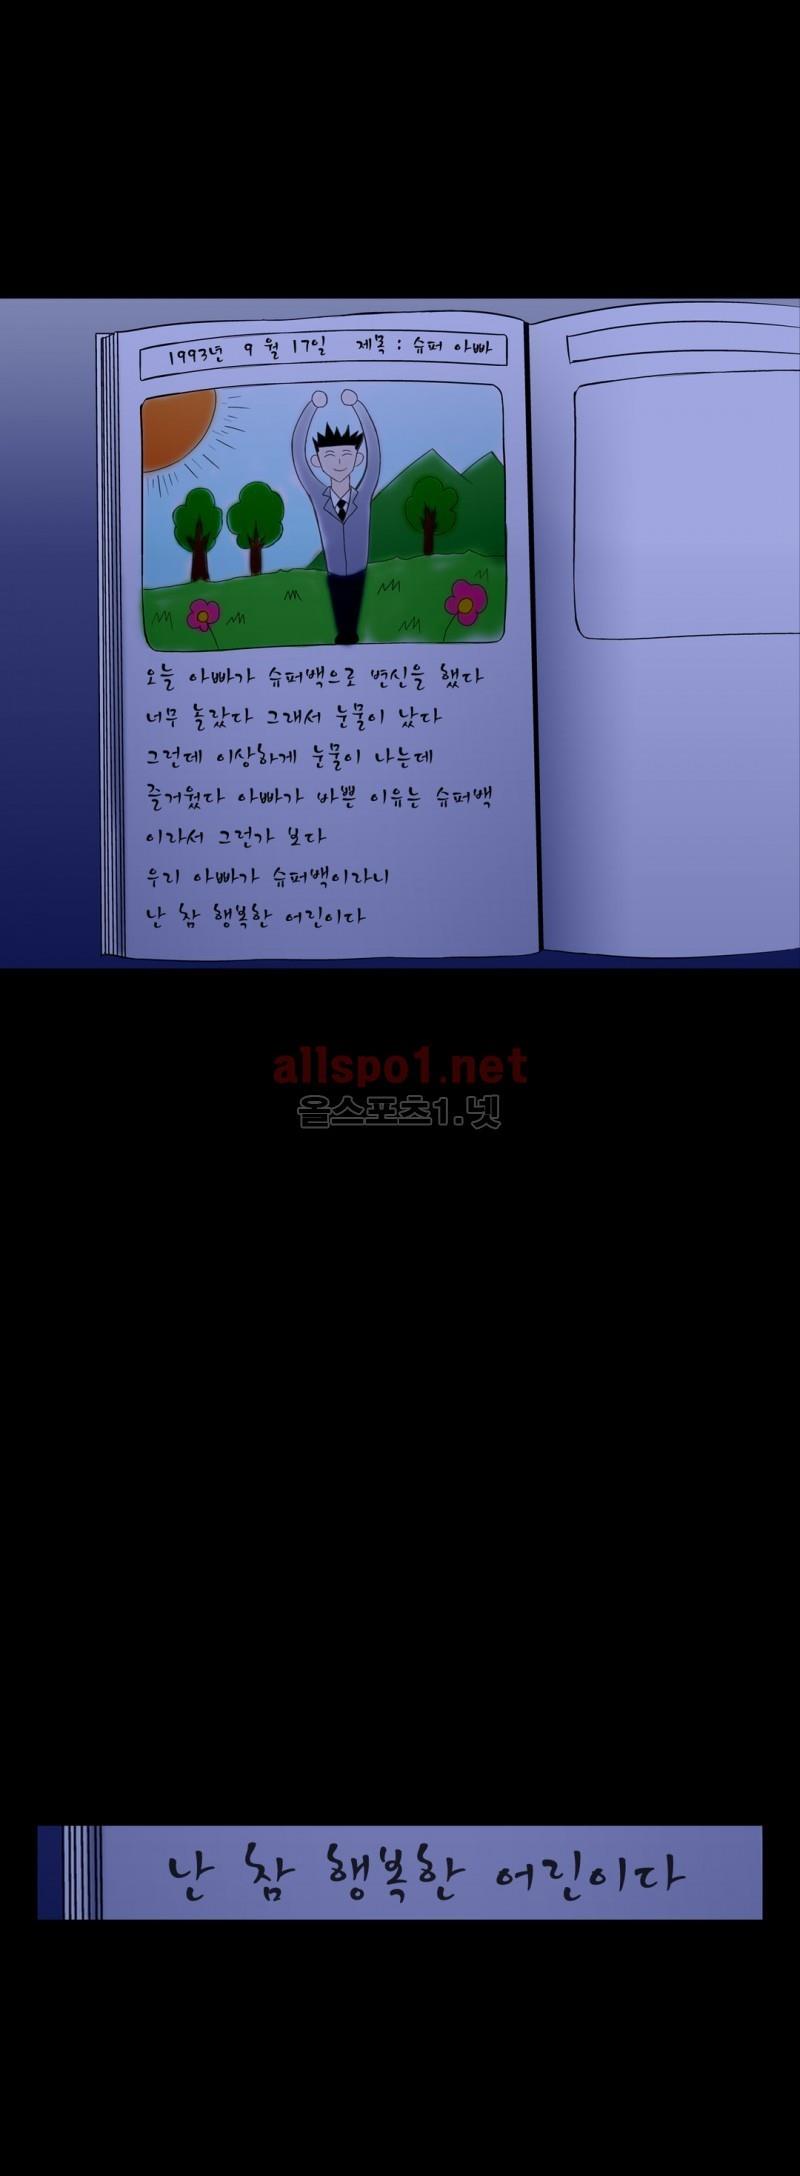 1993년 9월 17일 제목 : 슈퍼 아빠
오늘 아빠가 슈퍼백으로 변신을 했다
너무 놀랐다 그래서 눈물이 났다
그런데 이상하게 눈물이 나는데
즐거웠다 아빠가 바쁜 이유는 슈퍼백
이라서 그런가 보다
우리 아빠가 슈퍼백이라니
난 참 행복한 어린이다
allspo1.net
올스포츠1.넷
난 참 행복한 어린이다